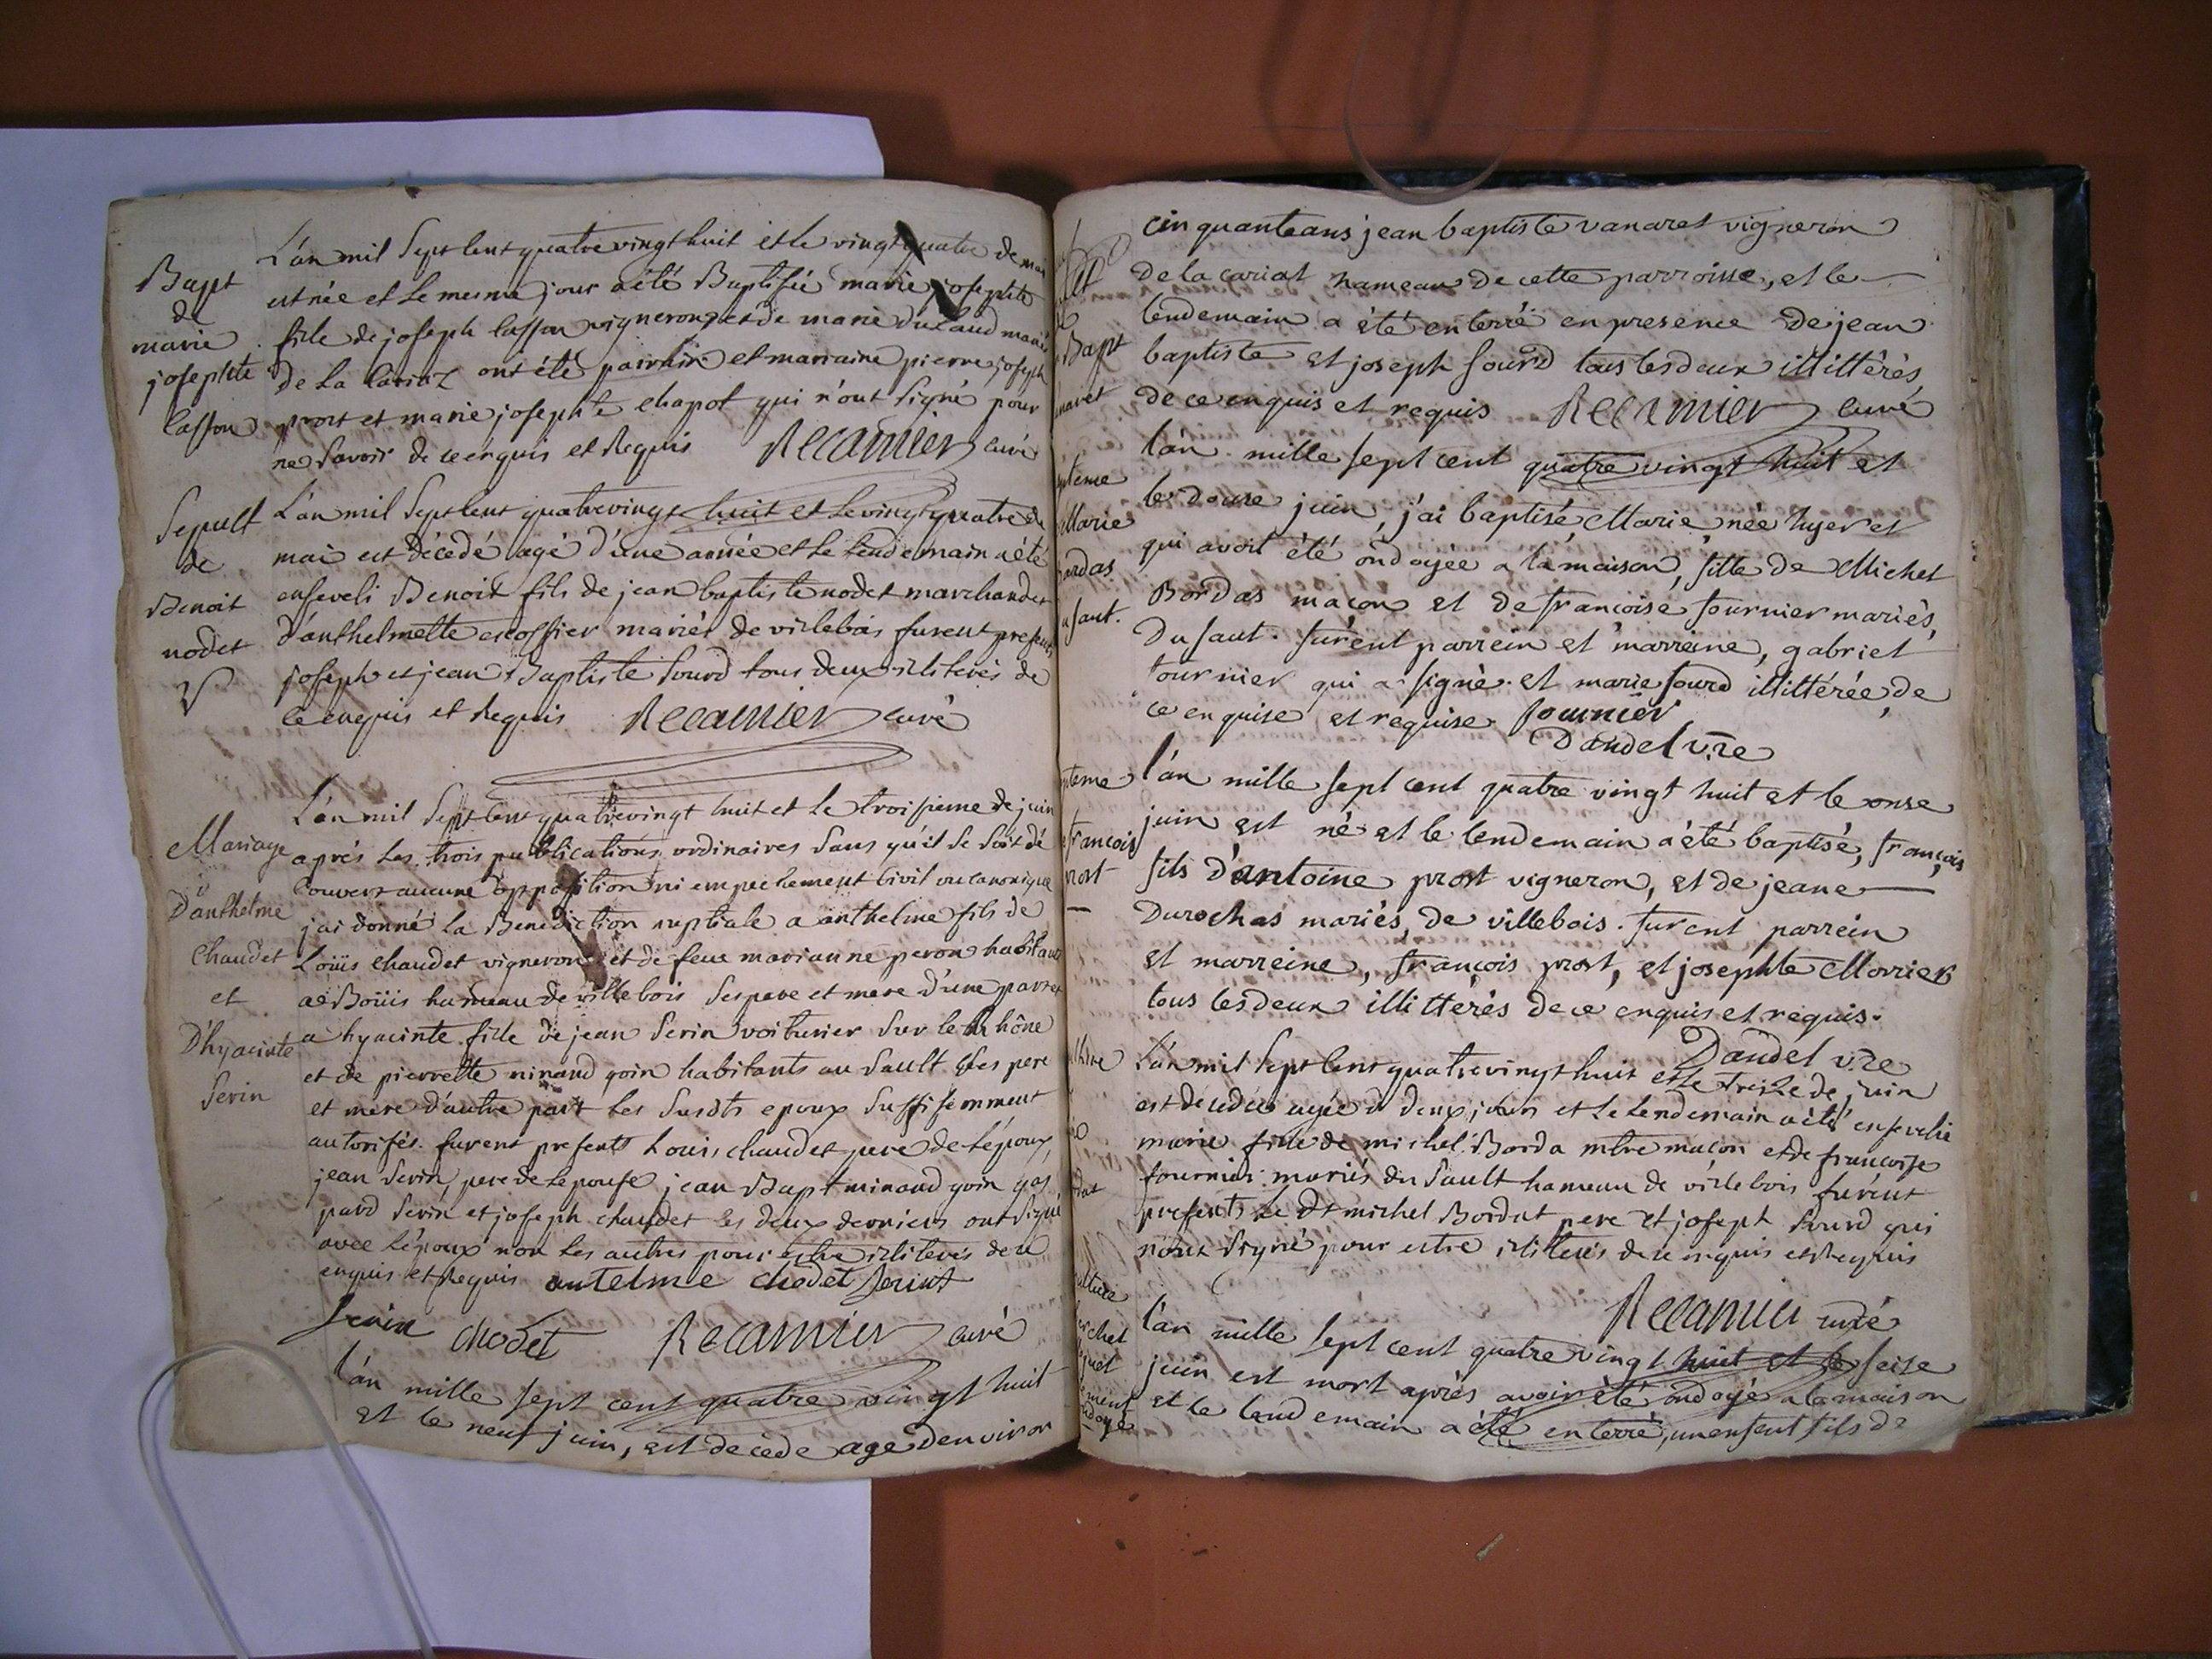 Bapt
de
marie
josephte
Lasson
L'an mil Sept Cent quatre vingt huit et le vingt quatre de mai
est née et le mesme jour a été Baptisée marie josephte
fille de joseph Lasson vigneron et de marie duraud mariés
de La Cariaz ont été parrain et marraine pierre joseph
prost et marie josephte chapot qui n'ont signé pour
ne savoir de ce enquis et Requis Recamier curé
Sepult
de
Benoit
nodet
L'an mil Sept Cent quatre vingt huit et le vingt quatre de
mai est décédé agé d'une année et le lendemain a été
enseveli Benoit fils de jean baptiste nodet marchand et
d'anthelmette escoffier mariés de villebois furent presents
joseph et jean Baptiste Sourd tous deux illiterés de
ce enquis et Requis Recamier curé
Mariage
D'anthelme
Chaudet
et
D'hyacinte
Serin
L'an mil Sept Cent quatre vingt huit et Le troisieme de juin
aprés Les trois publications ordinaires Sans qu'il Se Soit dé
couvert aucune opposition ni empechement Civil ou Canonique
j'ai donné La Benediction nuptiale a anthelme fils de
Loüis chaudet vigneron et de feue marianne peron habitans
a Boüis hameau de villebois Ses pere et mere d'une part et
a hyacinte fille de jean Serin voiturier Sur le Rhône
et de pierrette minaud goin habitants au Sault Ses pere
et mere d'autre part Les Susdts epoux Suffisemment
autorisés. furent presents Louis chaudet pere de L'époux,
jean Serin pere de L'epouse jean Bapt minaud goin gas
pard Serin et joseph chaudet les deux derniers ont Signé
avec L'époux non Les autres pour estre illiterés de ce
enquis et Requis antelme chodet Serint
Serin chodet Recamier curé
l'an mille sept cent quatre vingt huit
et le neuf juin, est décédé agé d'environ
Bapt
cinquante ans jean baptiste vanaret vigneron
de la cariat hameau de cette parroisse, et le
lendemain a été enterré en presence de jean
baptiste et joseph sourd tous les deux illittérés
de ce enquis et requis Recamier curé
Marie
l'an mille sept cent quatre vingt huit et
le douze juin, j'ai baptisé, Marie, née hyer et
qui avoit été ondoyée a la maison, fille de Michel
Bordas maçon et de françoise fournier mariés,
du saut. furent parrein et marreine, gabriel
fournier qui a signé. et marie sourd illittérée, de
ce enquise et requise. fournier
Dandel v.re
françois
prost
l'an mille sept cent quatre vingt huit et le onze
juin est né et le lendemain a été baptisé, françois
fils d'antoine prost vigneron, et de jeane
Durochas mariés, de villebois. furent parrein
et marreine, françois prost, et josephte Morrier
tous les deux illittérés de ce enquis et requis.
Dandel v.re
L'an mil Sept Cent quatre vingt huit et le treize de juin
est décédée agée d deux jours et Le Lendemain a été ensevelie
marie fille de michel Borda mtre maçon et de francoise
fournier mariés du Sault hameau de villebois furent
presents Le dt michel Bordat pere et joseph Sourd qui
n'ont Signé pour estre illiterés de ce enquis et Requis
Recamier curé
l'an mille sept cent quatre vingt huit et le seize
juin est mort après avoir été ondoyé a la maison
et le lendemain a été enterré, un enfent fils de